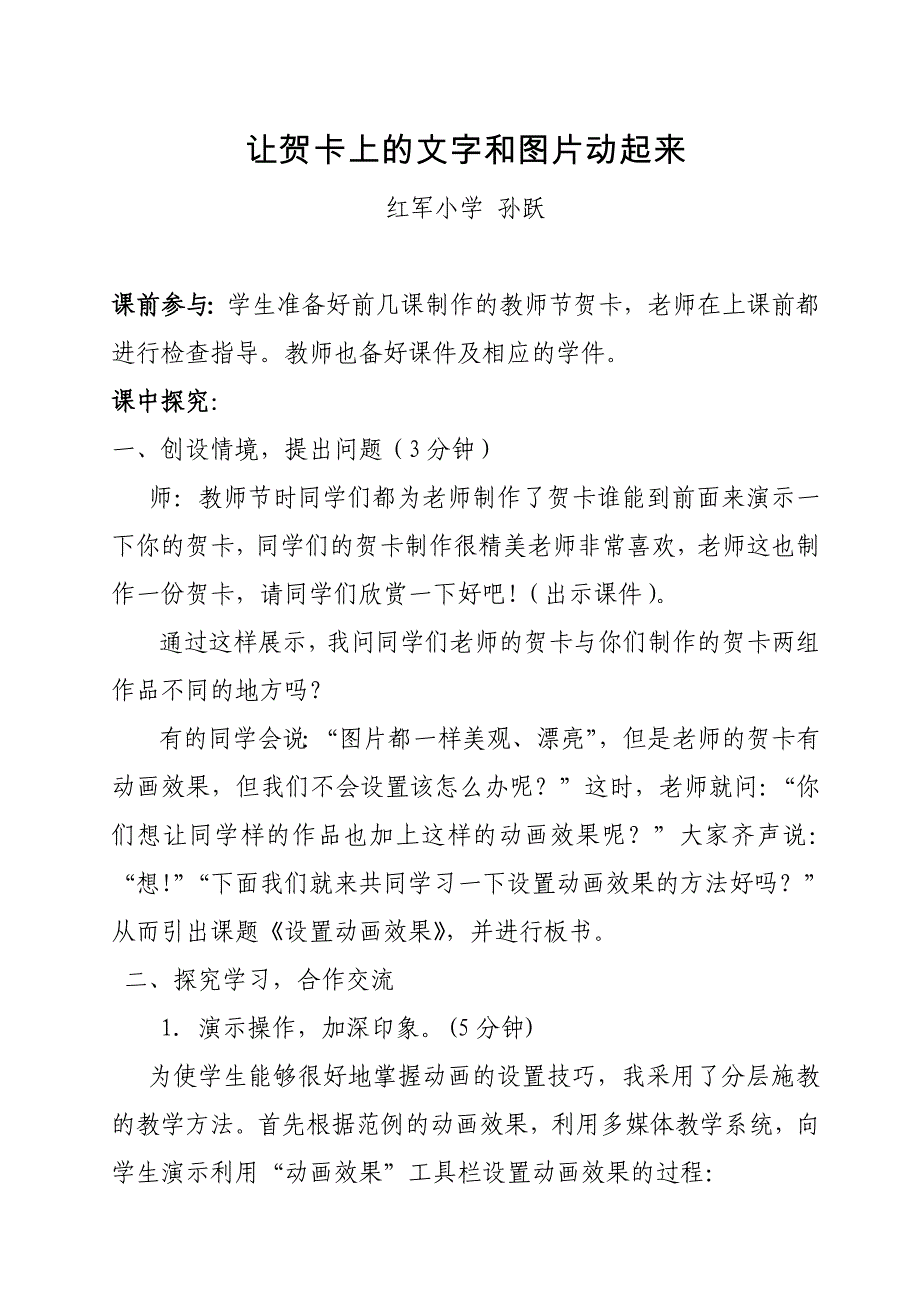 让贺卡上的文字和图片动起来
红军小学 孙跃
课前参与：学生准备好前几课制作的教师节贺卡，老师在上课前都
进行检查指导。教师也备好课件及相应的学件。
课中探究：
一、创设情境，提出问题（3分钟）
师：教师节时同学们都为老师制作了贺卡谁能到前面来演示一
下你的贺卡，同学们的贺卡制作很精美老师非常喜欢，老师这也制
作一份贺卡，请同学们欣赏一下好吧！（出示课件）。
通过这样展示，我问同学们老师的贺卡与你们制作的贺卡两组
作品不同的地方吗？
有的同学会说：“图片都一样美观、漂亮”，但是老师的贺卡有
动画效果，但我们不会设置该怎么办呢？”这时，老师就问：“你
们想让同学样的作品也加上这样的动画效果呢？”大家齐声说：
“想！”“下面我们就来共同学习一下设置动画效果的方法好吗？”
从而引出课题《设置动画效果》，并进行板书。
二、探究学习，合作交流
1. 演示操作，加深印象。(5分钟)
为使学生能够很好地掌握动画的设置技巧，我采用了分层施教
的教学方法。首先根据范例的动画效果，利用多媒体教学系统，向
学生演示利用“动画效果”工具栏设置动画效果的过程：